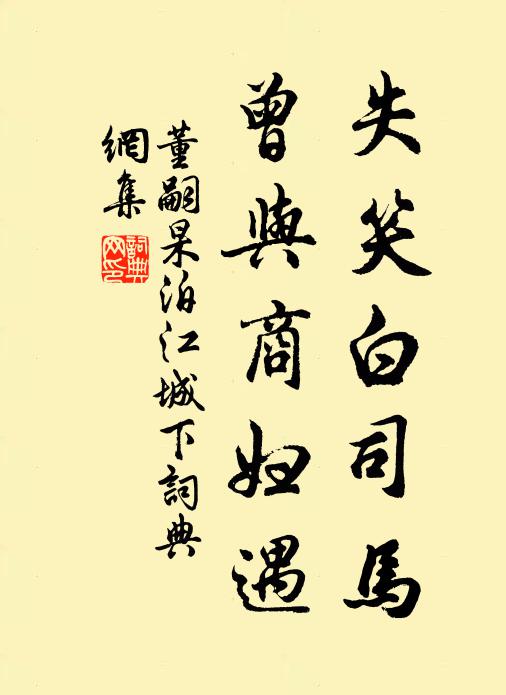 失笑白司馬
曾與商妇遇
董嗣杲泊江城下詞典
網集
詞典
网印